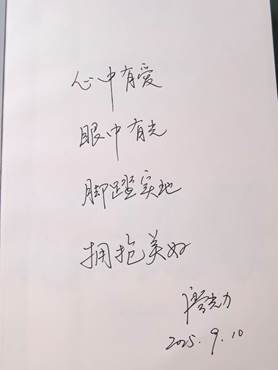 心中有爱
眼中有光
脚踏实地
拥抱美好
2025.9.10